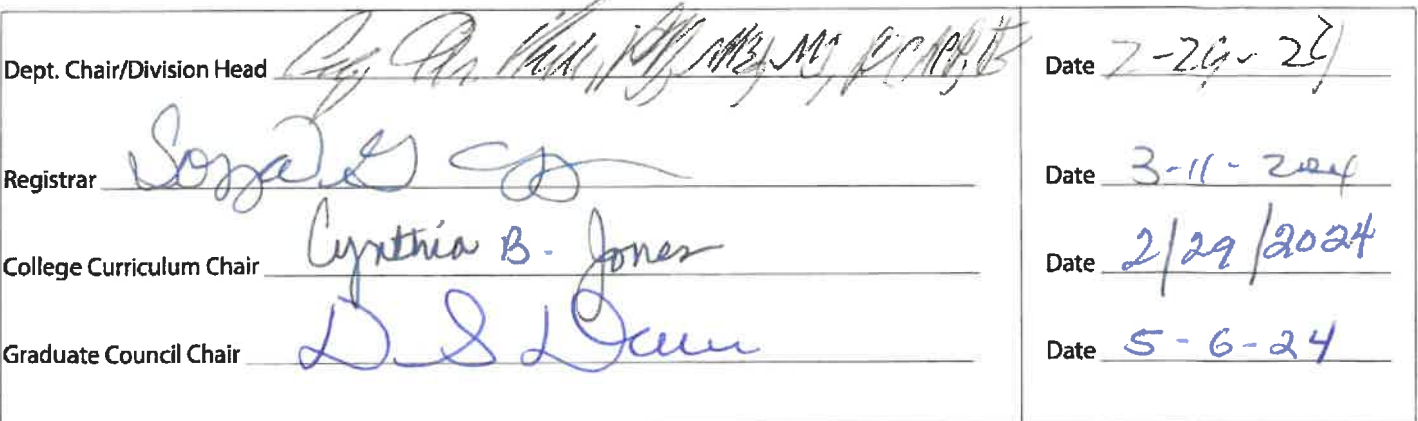 Dept. Chair/Division Head Date 2-29-24
Registrar Date 3-11-2024
College Curriculum Chair Cynthia B. Jones Date 2/29/2024
Graduate Council Chair D S Date 5-6-24